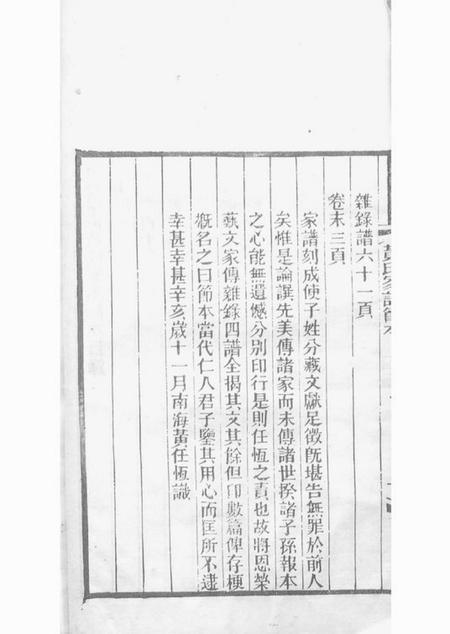 黃氏家譜節本
雜錄譜六十一頁
卷末三頁
家譜刻成使子姓分藏文獻足徵既堪告無罪於前人
矣惟是論譔先美傳諸家而未傳諸世揆諸子孫報本
之心能無遺憾分別印行是則任恆之責也故將恩榮
藝文家傳雜錄四譜全揭其文其餘但印數篇俾存梗
概名之曰節本當代仁人君子鑒其用心而匡所不逮
幸甚幸甚辛亥歲十一月南海黃任恆識